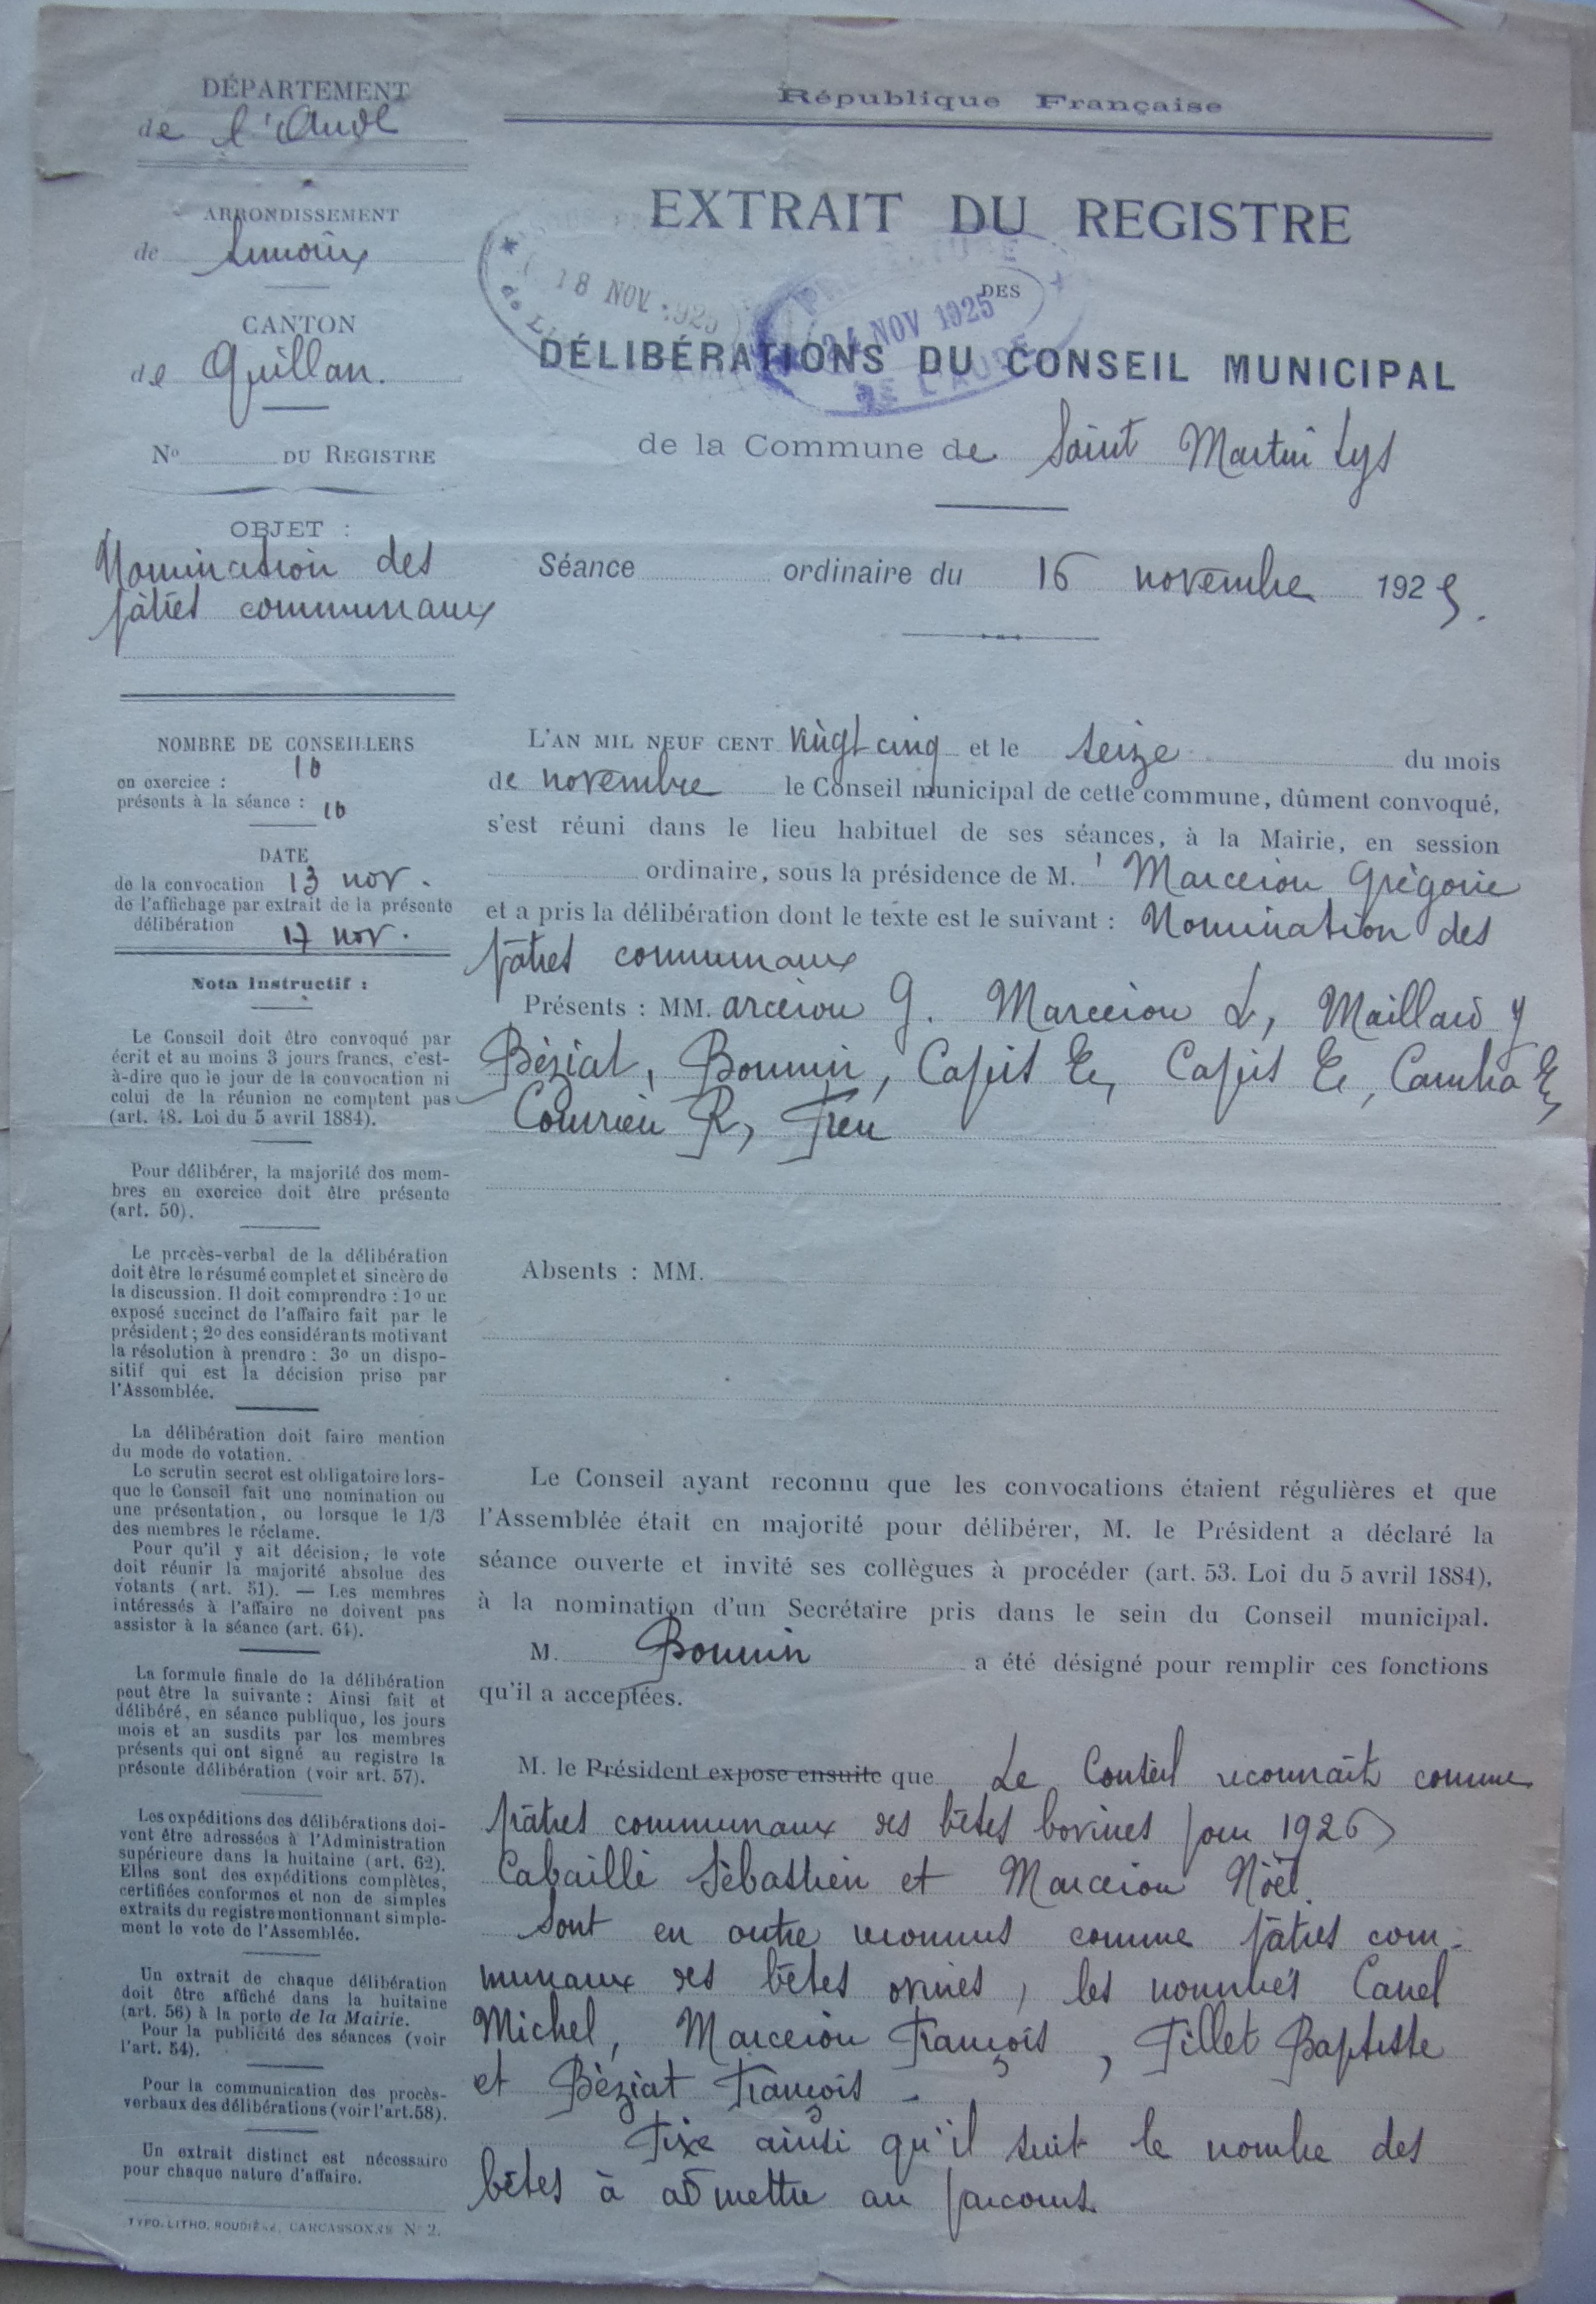 DÉPARTEMENT
de l'Aude
ARRONDISSEMENT
de Limoux
CANTON
de Quillan.
No DU REGISTRE
OBJET :
Nomination des
pâtres communaux
NOMBRE DE CONSEILLERS
en exercice : 10
présents à la séance : 10
DATE
de la convocation 13 nov.
de l'affichage par extrait de la présente
délibération 17 nov.
Nota Instructif :
Le Conseil doit être convoqué par
écrit et au moins 3 jours francs, c'est-
à-dire que le jour de la convocation ni
celui de la réunion ne comptent pas
(art. 48. Loi du 5 avril 1884).
Pour délibérer, la majorité des mem-
bres en exercice doit être présente
(art. 50).
Le procès-verbal de la délibération
doit être le résumé complet et sincère de
la discussion. Il doit comprendre : 1o un
exposé succinct de l'affaire fait par le
président ; 2o des considérants motivant
la résolution à prendre : 3o un dispo-
sitif qui est la décision prise par
l'Assemblée.
La délibération doit faire mention
du mode de votation.
Le scrutin secret est obligatoire lors-
que le Conseil fait une nomination ou
une présentation, ou lorsque le 1/3
des membres le réclame.
Pour qu'il y ait décision, le vote
doit réunir la majorité absolue des
votants (art. 51). — Les membres
intéressés à l'affaire ne doivent pas
assister à la séance (art. 64).
La formule finale de la délibération
peut être la suivante : Ainsi fait et
délibéré, en séance publique, les jours
mois et an susdits par les membres
présents qui ont signé au registre la
présente délibération (voir art. 57).
Les expéditions des délibérations doi-
vent être adressées à l'Administration
supérieure dans la huitaine (art. 62).
Elles sont des expéditions complètes,
certifiées conformes et non de simples
extraits du registre mentionnant simple-
ment le vote de l'Assemblée.
Un extrait de chaque délibération
doit être affiché dans la huitaine
(art. 56) à la porte de la Mairie.
Pour la publicité des séances (voir
l'art. 54).
Pour la communication des procès-
verbaux des délibérations (voir l'art. 58).
Un extrait distinct est nécessaire
pour chaque nature d'affaire.
TYPO. LITHO. ROUDIÈRE, CARCASSONNE No 2.
République Française
EXTRAIT DU REGISTRE
18 NOV 1925
PRÉFECTURE
24 NOV 1925
DE L'AUDE
DES
DÉLIBÉRATIONS DU CONSEIL MUNICIPAL
de la Commune de Saint Martin Lys
Séance ordinaire du 16 novembre 1925.
L'AN MIL NEUF CENT vingt cinq et le seize du mois
de novembre le Conseil municipal de cette commune, dûment convoqué,
s'est réuni dans le lieu habituel de ses séances, à la Mairie, en session
ordinaire, sous la présidence de M. Marcerou Grégoire
et a pris la délibération dont le texte est le suivant : Nomination des
pâtres communaux
Présents : MM. arcerou G. Marcerou L, Maillard
Béziat, Bounin, Capis E, Capis E, Cambo E,
Courrieu R,
Absents : MM.
Le Conseil ayant reconnu que les convocations étaient régulières et que
l'Assemblée était en majorité pour délibérer, M. le Président a déclaré la
séance ouverte et invité ses collègues à procéder (art. 53. Loi du 5 avril 1884),
à la nomination d'un Secrétaire pris dans le sein du Conseil municipal.
M. Bounin a été désigné pour remplir ces fonctions
qu'il a acceptées.
M. le Président expose ensuite que Le Conseil reconnaît comme
pâtres communaux des bêtes bovines pour 1926
Cabaillé Sébastien et Marcerou Noël.
Sont en outre reconnus comme pâtres com-
munaux des bêtes ovines, les nommés Canel
Michel, Marcerou François, Tillet Baptiste
et Béziat François -
Fixe ainsi qu'il suit le nombre des
bêtes à admettre au parcours.